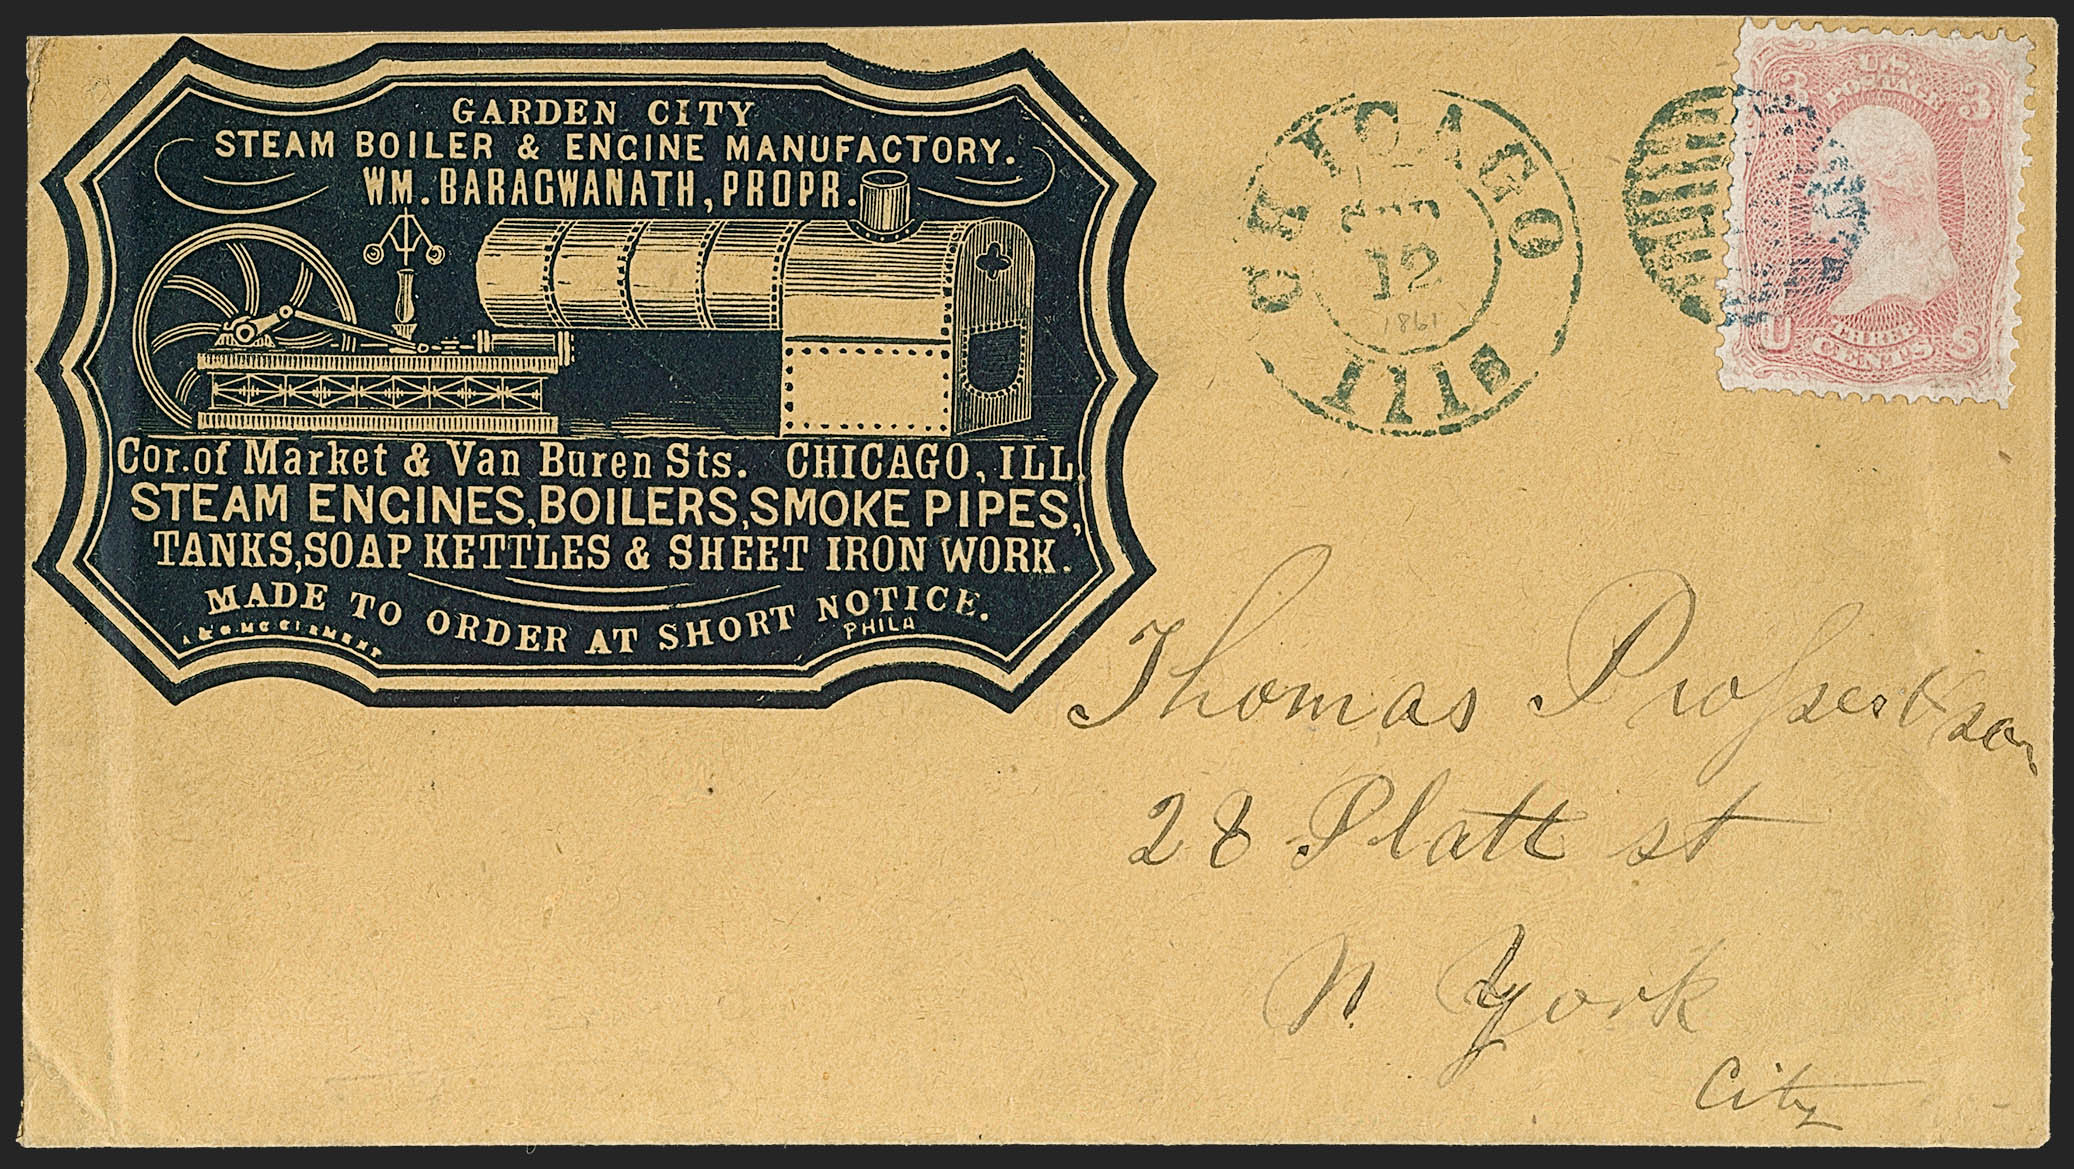 GARDEN CITY
STEAM BOILER & ENGINE MANUFACTORY.
WM. BARAGWANATH, PROPR.
Cor. of Market & Van Buren Sts. CHICAGO, ILL.
STEAM ENGINES, BOILERS, SMOKE PIPES,
TANKS, SOAP KETTLES & SHEET IRON WORK.
MADE TO ORDER AT SHORT NOTICE.
A & G MCCLEMENT PHILA
CHICAGO
SEP
12
1861
ILL
U.S.
POSTAGE
3 3
U THREE S
CENTS
Thomas Prosser & son
28 Platt st
N. York
City